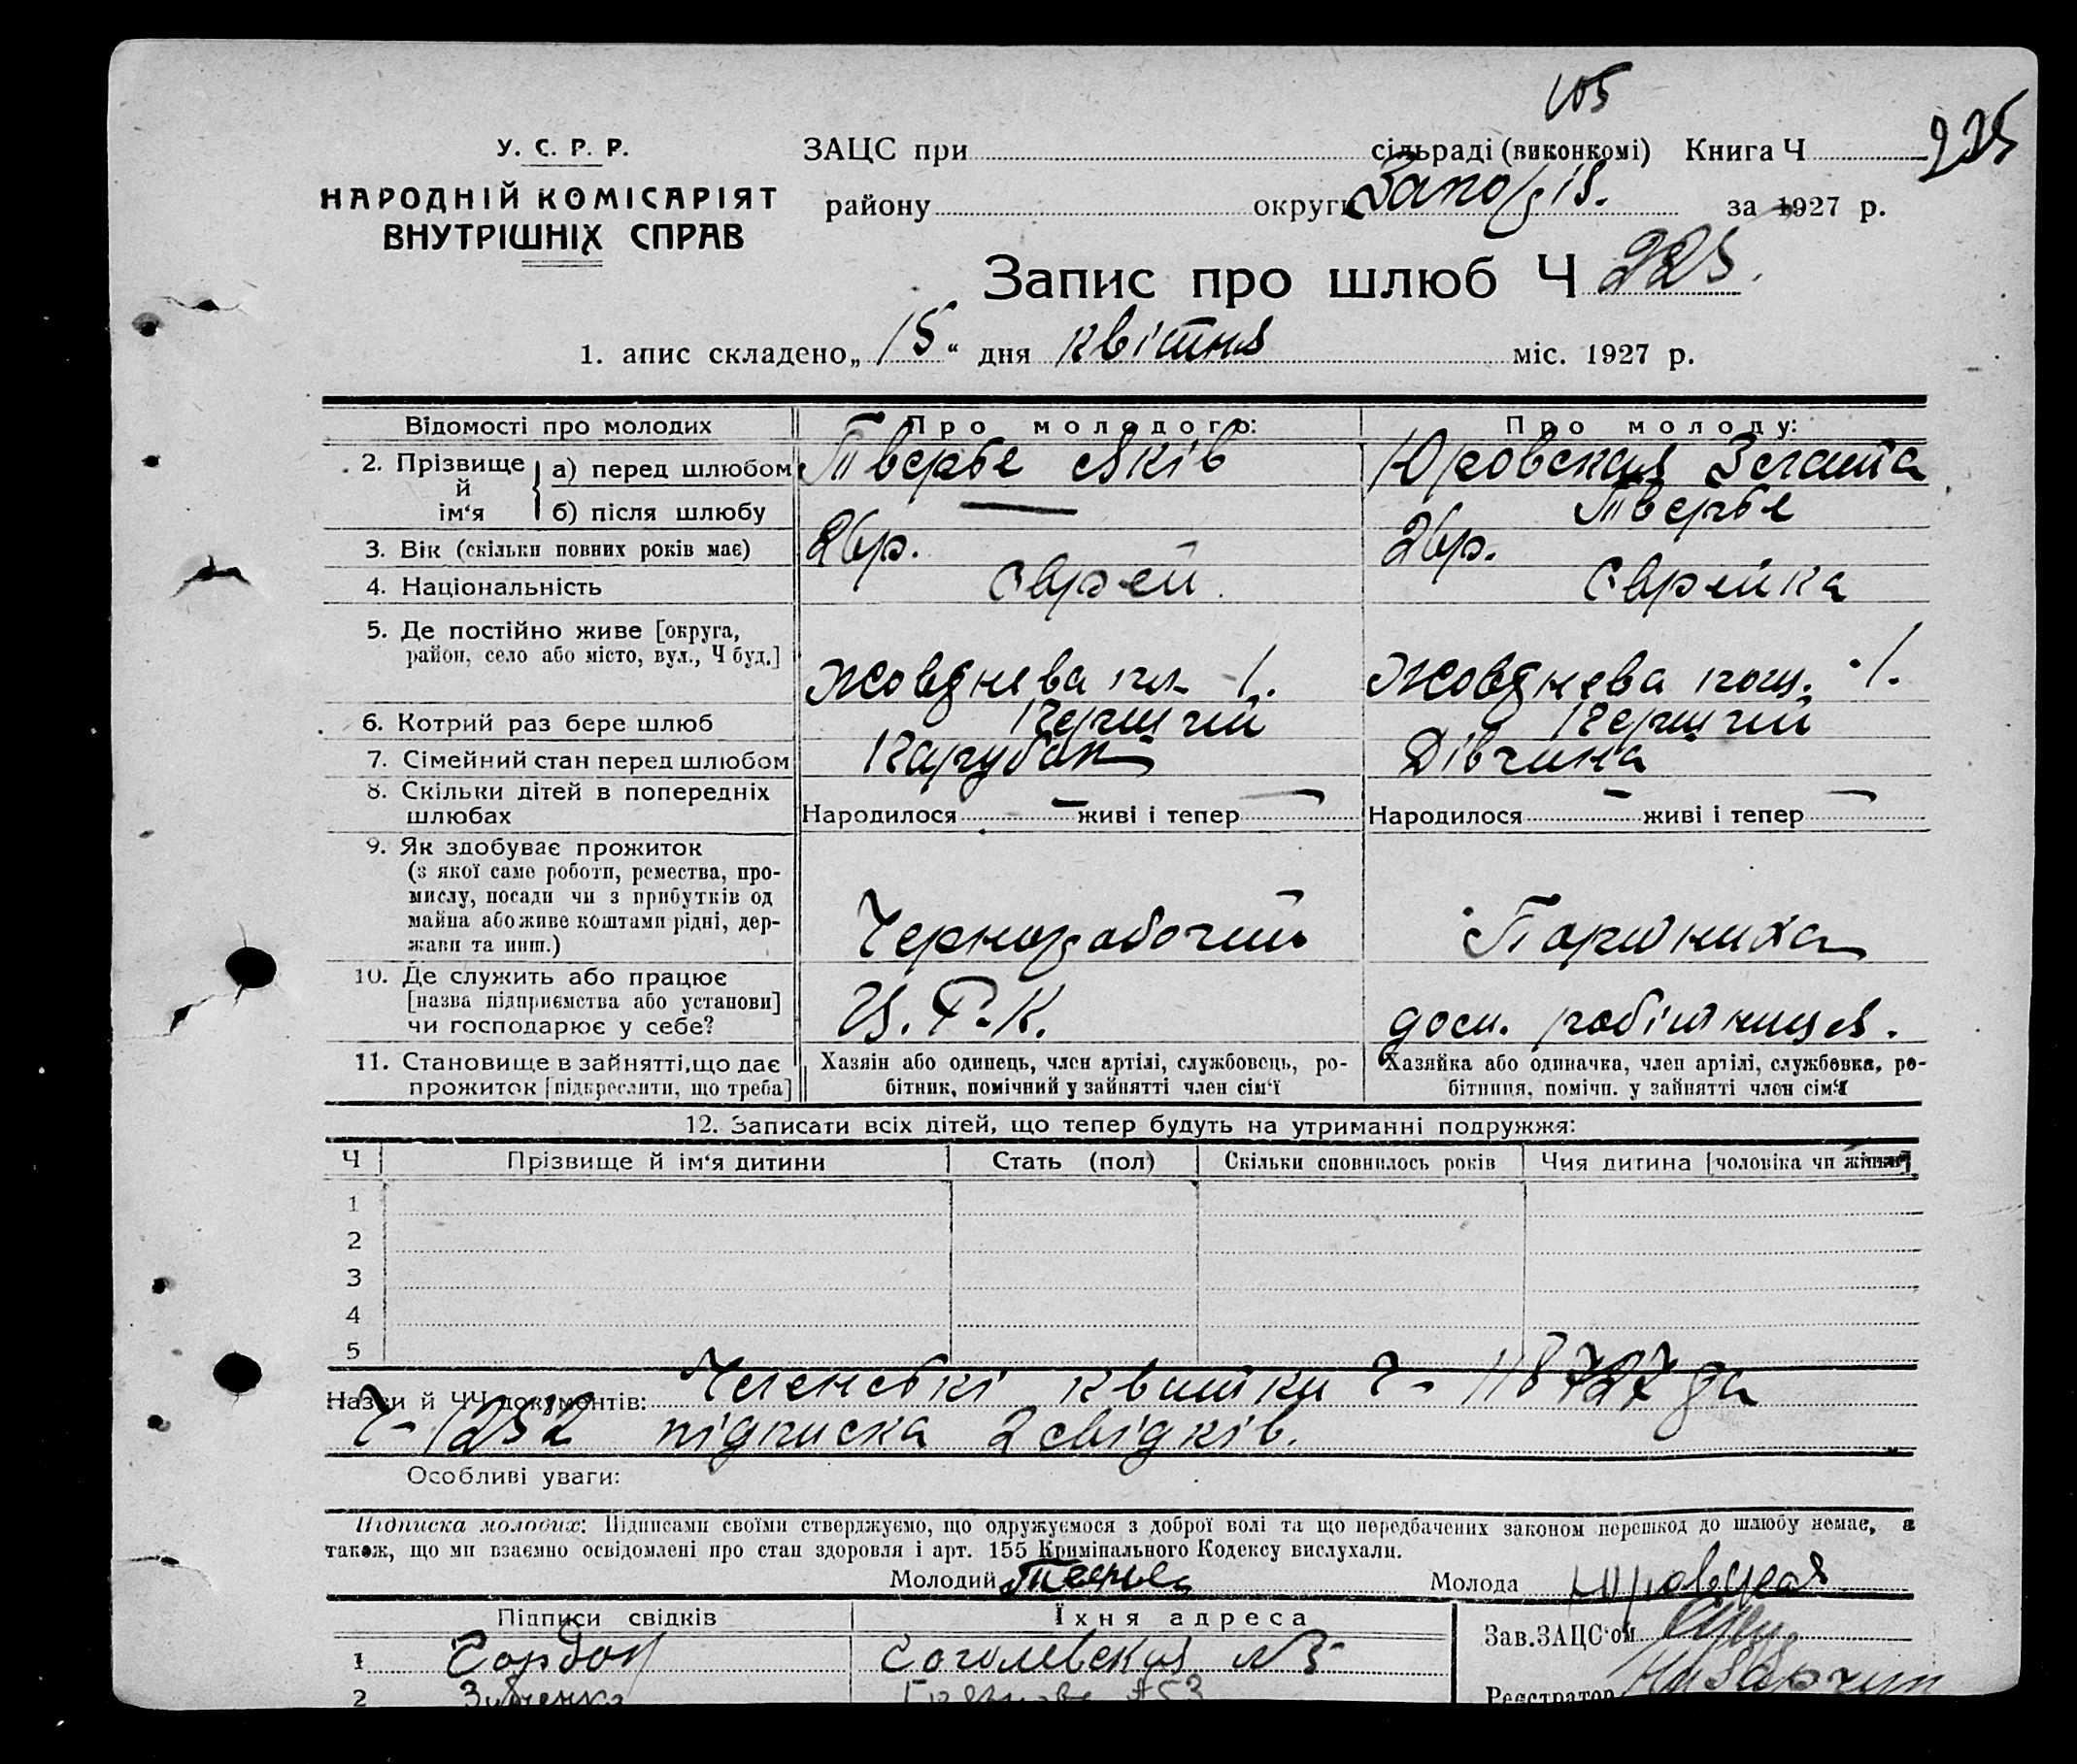 105
У. С. Р. Р.
НАРОДНІЙ КОМІСАРІЯТ
ВНУТРІШНІХ СПРАВ
ЗАЦС при сільраді (виконкомі) Книга Ч 225
району округи за 1927 р.
Запис про шлюб Ч 225.
1. апис складено „15“ дня квітня міс. 1927 р.
Відомості про молодих Про молодого: Про молоду:
2. Прізвище й ім‘я а) перед шлюбом Твербе Яків Юровская Злата
б) після шлюбу — Твербе
3. Вік (скільки повних років має) 26р. 26р.
4. Національність Єврей Єврейка
5. Де постійно живе [округа,
район, село або місто, вул., Ч буд.] Жовднева пл. 1. Жовднева площ. 1.
6. Котрий раз бере шлюб Перший Перший
7. Сімейний стан перед шлюбом Парубок Дівчина
8. Скільки дітей в попередніх
шлюбах Народилося — живі і тепер — Народилося — живі і тепер —
9. Як здобуває прожиток
(з якої саме роботи, ремества, про-
мислу, посади чи з прибутків од
майна або живе коштами рідні, дер-
жави та инш.) Чернорабочий
10. Де служить або працює
[назва підприємства або установи]
чи господарює у себе? Ц. Р. К. дом. робітниця.
11. Становище в зайнятті, що дає
прожиток [підкреслити, що треба]
Хазяін або одинець, член артілі, службовець, ро-
бітник, помічний у зайнятті член сім‘ї
Хазяйка або одиначка, член артілі, службовка, ро-
бітниця, помічн. у зайнятті член сім‘ї
12. Записати всіх дітей, що тепер будуть на утриманні подружжя:
Ч Прізвище й ім‘я дитини Стать (пол) Скільки сповнилось років Чия дитина [чоловіка чи жінки]
1
2
3
4
5
Назви й ЧЧ документів: Членські квитки Ч- 118727 да
Ч-1252 підписка 2 свідків.
Особливі уваги:
Підписка молодих: Підписами своїми стверджуємо, що одружуємося з доброї волі та що передбачених законом перешкод до шлюбу немає, а
також, що ми взаємно освідомлені про стан здоровля і арт. 155 Кримінального Кодексу вислухали.
Молодий Молода Юровская
Підписи свідків Їхня адреса
Зав. ЗАЦС‘ом
1 Гордон Гоголевская N 5
2 Зубченко
Реєстратор